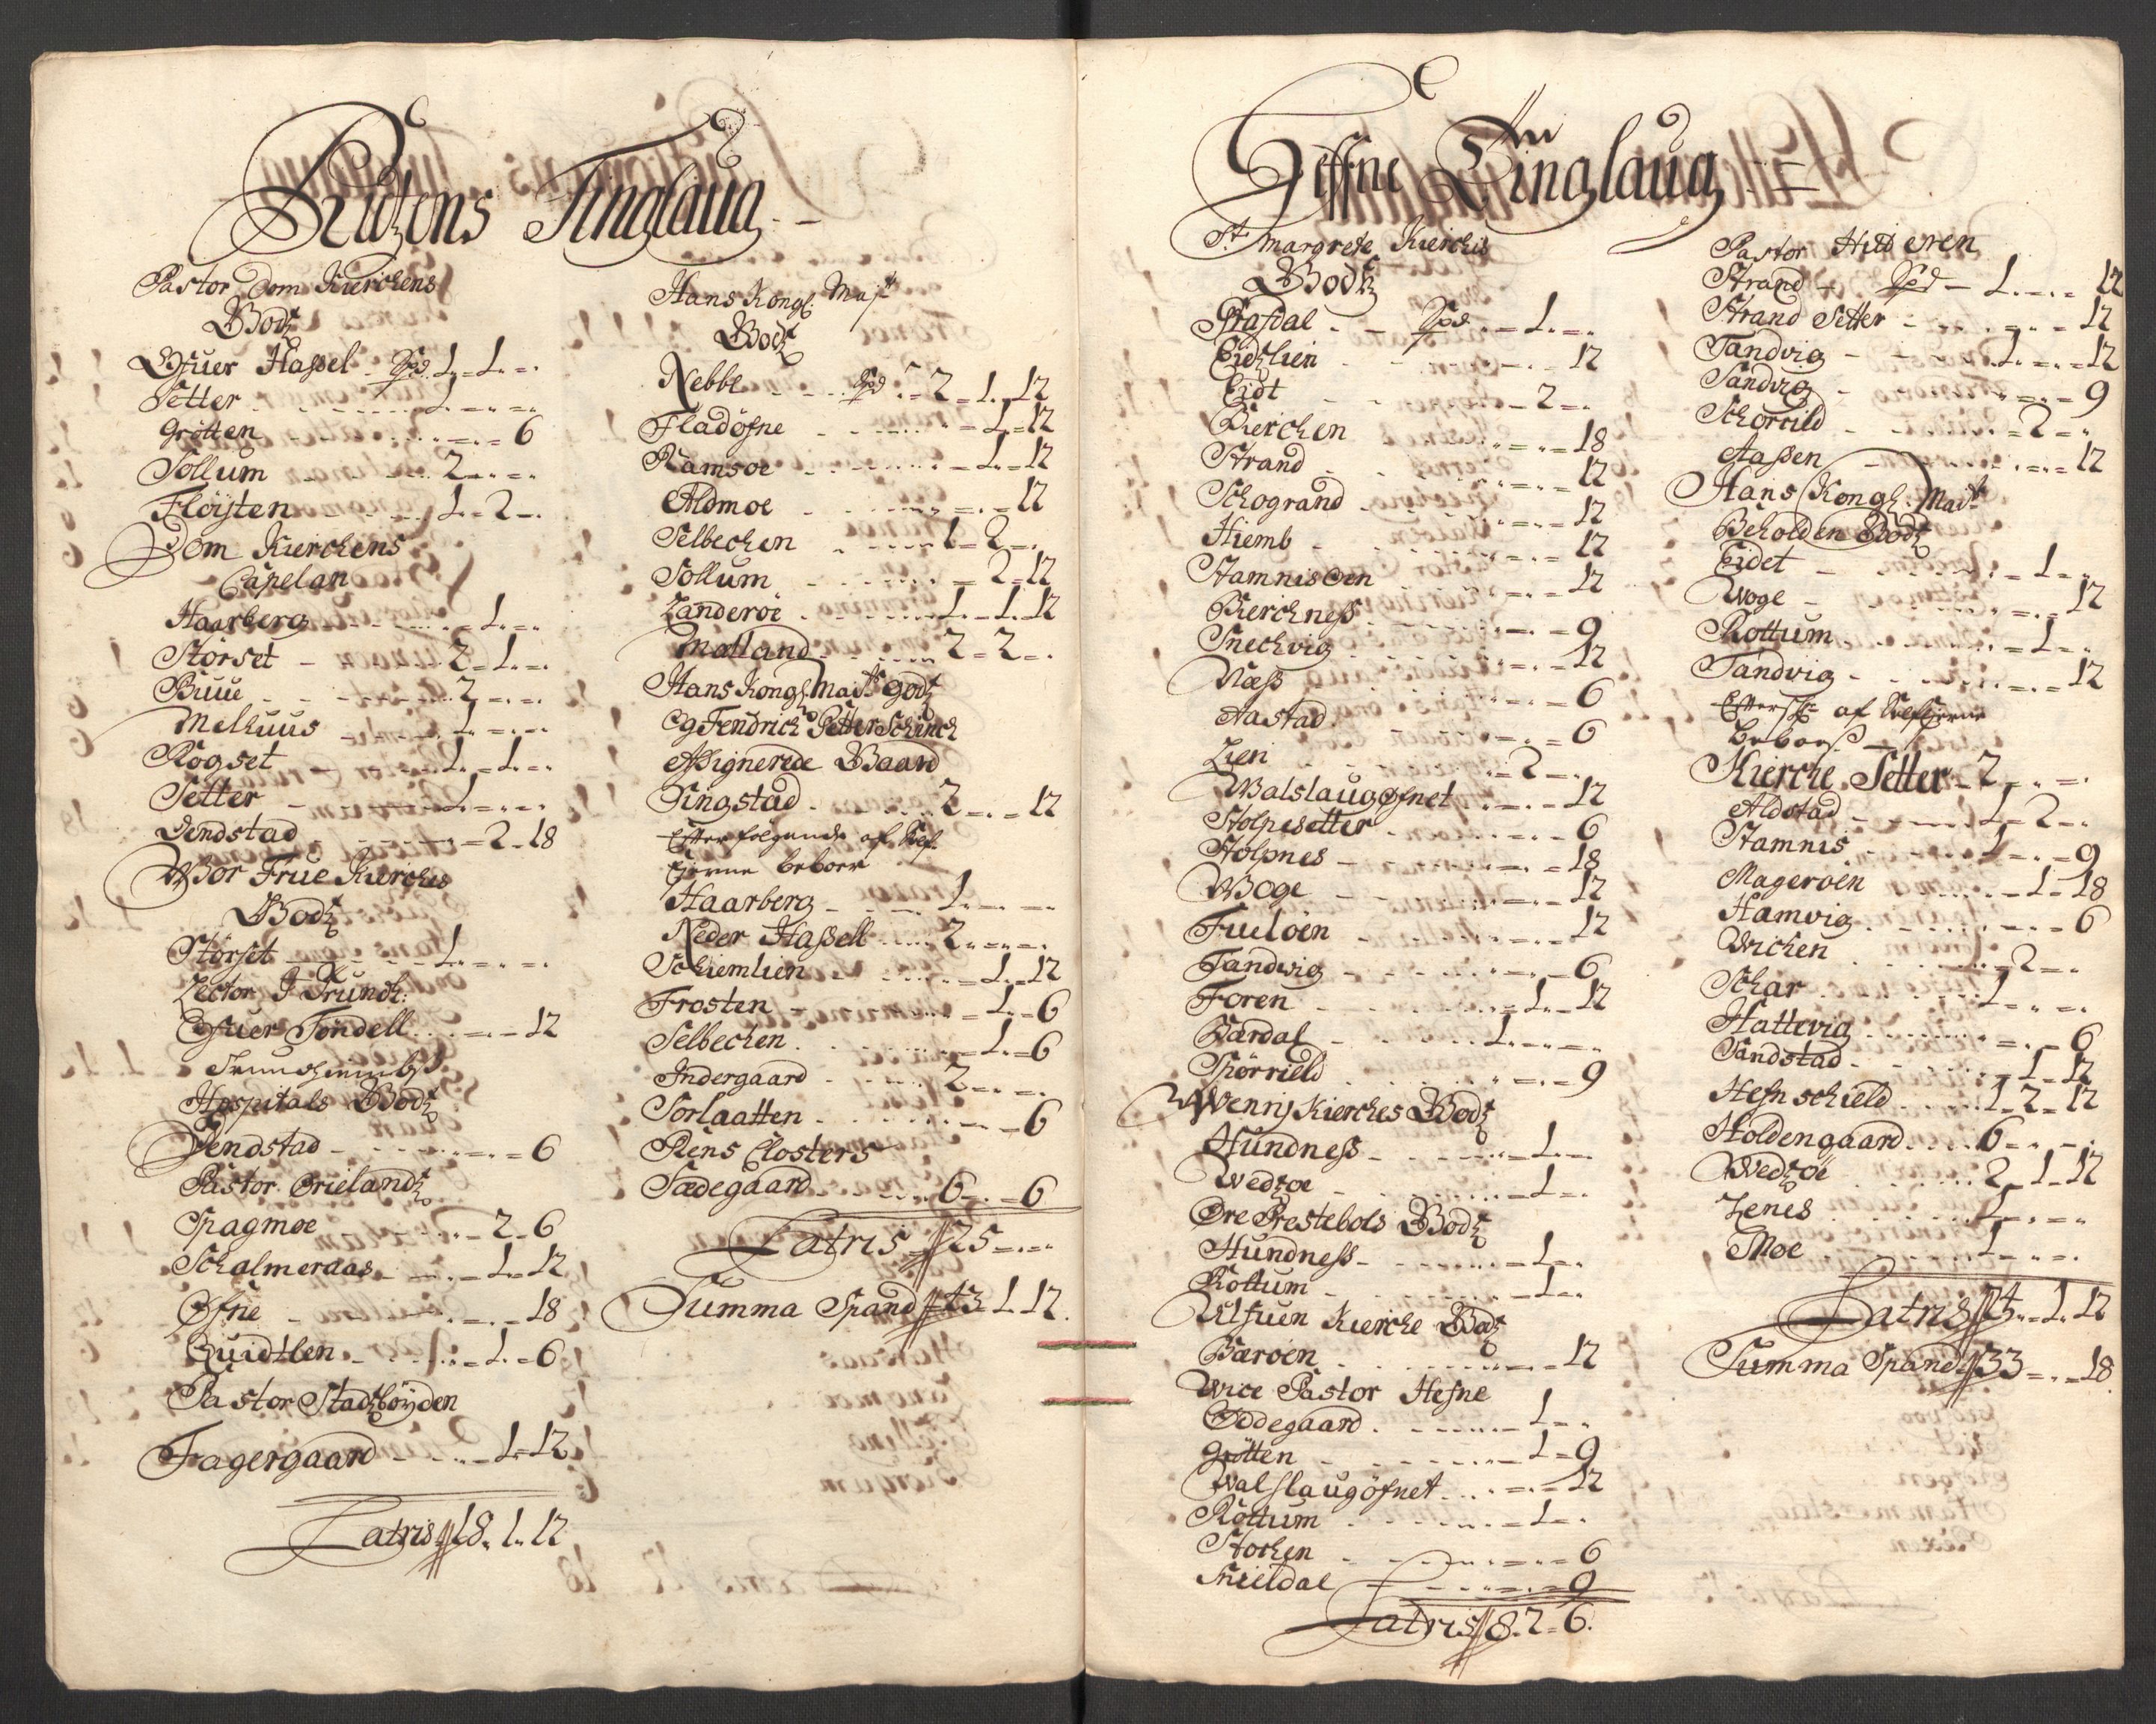 Biugens Tinglaug
Pastor Dom Kierchens
Godz
Øfuer Hassel - Spd. 1 - 1 -
Setter - 1 -
Grötten - 6
Sollum - 2 -
Flöysten - 1 - 2 -
Dom Kierchens
Capelan
Haarberg - 1 -
Störset - 2 - 1 -
Buue - 2 -
Melhuus - 1 -
Rögset - 1 - 1 -
Setter - 1 -
Dendstad - 2 - 18
Wor Frue Kierches
Godz
Störset - 1 -
Lector
Øfuer Tondell - 12
Hospitals Godz
Dendstad - 6
Pastor Ørielandz
Spagmoe - 2 - 6
Schalmeraas - 1 - 12
Øfne - 18
Quidtlen - 1 - 6
Pastor Stadzböyden
Fagergaard - 1 - 12
Latris 18. 1. 12
Hans Kongl: Mayt
Godz
Nebbe - Spd - 2 - 1 - 12
Fladöfne - 1 - 12
Ramsoe - 1 - 12
Aldmoe - 12
Selbechen - 1 - 2 -
Sollum - 2 - 12
Landeröe - 1 - 1 - 12
Mælland - 2 - 2 -
Hans Kongl: Maits godz
Og Fendrich Petter Schinch
Assignerede Gaard
Ringstad - 2 - 12
Efterfölgende af
Eierne beboer
Haarberg - 1 -
Neder Hassell - 2 -
Schiemlien - 1 - 12
Frosten - 1 - 6
Selbechen - 1 - 6
Indergaard - 2 -
Sorlaatten - 6
Reins Closters
Sædegaard - 6 - 6
Latris 25 -
Summa Spand 43 - 1 - 12
Heffne Tinglaug
St Margrete Kierchis
Godz
Stafdal - Spd - 1 -
Eidzlien - 12
Eidt - 2 -
Bierchen - 18
Strand - 12
Schogrand - 12
Hiemb - 12
Stamnisøen - 12
Bierchness - 9
Snechvig - 12
Næss - 6
Aastad - 6
Lien - 2 -
Walslaugøfnet - 12
Stolpesetter - 6
Stolpnes - 18
Woge - 12
Fueløen - 12
Tandwig - 6
Foren - 1 - 12
Bærdal - 1 -
Spörrield - 9
Wenns Kierches Godz
Hundness - 1 -
Wedzøe - 1 -
Øre Prestebols Godz
Hundness - 1 -
Rottum - 1 -
Kierche Godz
Bæröen - 12
Wice Pastor Hefne
Ødegaard - 1 -
Grötten - 1 - 9
Walslaugöfnet - 12
Rottum - 1 -
Stochen - 6
Snieldal - 9
Latris 8. 2 - 6.
Pastor Hitteren
Strand - Spd - 1 - 12
Strand Setter - 12
Tandvig - 1 - 12
Sandvig - 9
Schorrild - 2 -
Aassen - 12
Hans Kongl: Mait
Beholden Godz
Eidet - 1 -
Woge - 12
Rottum - 1 -
Tandvig - 12
af Selfeierne
Kierche Setter - 2 -
Aldstad - 1 - 2 -
Stamnis - 1 - 9
Mageröen - 1 - 18
Hamvig - 6
Wichen - 2 -
Schar - 1 -
Hattevig - 6
Sandstad - 1 - 12
Hefnschield - 1 - 2 - 12
Holdengaard - 6 -
Wedzöe - 2 - 1 - 12
Lenes - 1 -
Moe - 1 -
Latris 24 - 1 - 12
Summa Spand 33 - 18